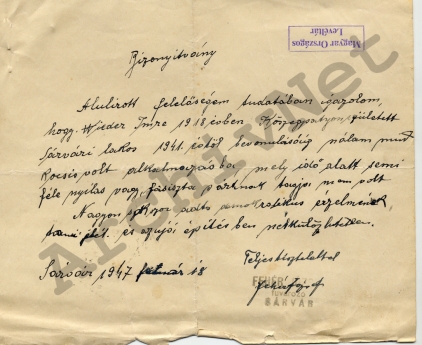 Magyar Országos
Levéltár
Bizonyitvány
Alulirott felelőségem tudatában igazolom,
hogy Wieder Imre 1918 évben Kőszegpatyon született
Sárvári lakos 1941 évtől bevonulásáig nálam mint
kocsis volt alkalmazásba, mely idő alatt semi
féle nyilas vagy fasiszta pártnak tagja nem volt
Nagyon sokszor adta demokratikus érzelmének
és az újjá építésben nélkülözhetetlen.
Sárvár 1947 18
Teljes tisztelettel
FEHÉR
SÁRVÁR
ArchivNet